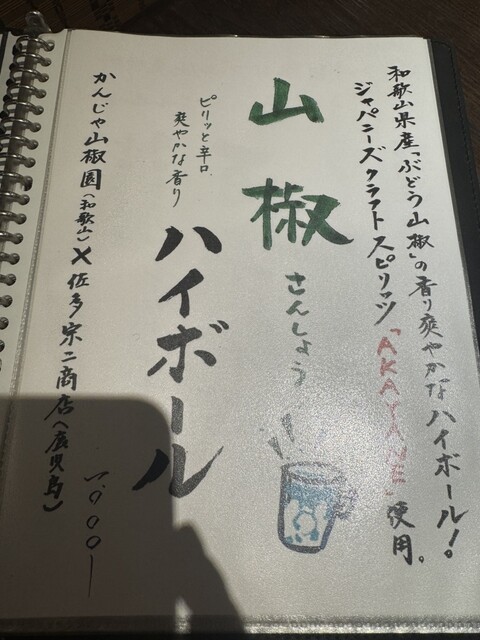 和歌山県産「ぶどう山椒」の香り爽やかなハイボール！
ジャパニーズクラフトスピリッツ「AKAYANE」使用。
山椒
さんしょう
ハイボール
ピリッと辛口、
爽やかな香り
かんじゃ山椒園（和歌山）×佐多宗二商店（鹿児島）
1,000ー